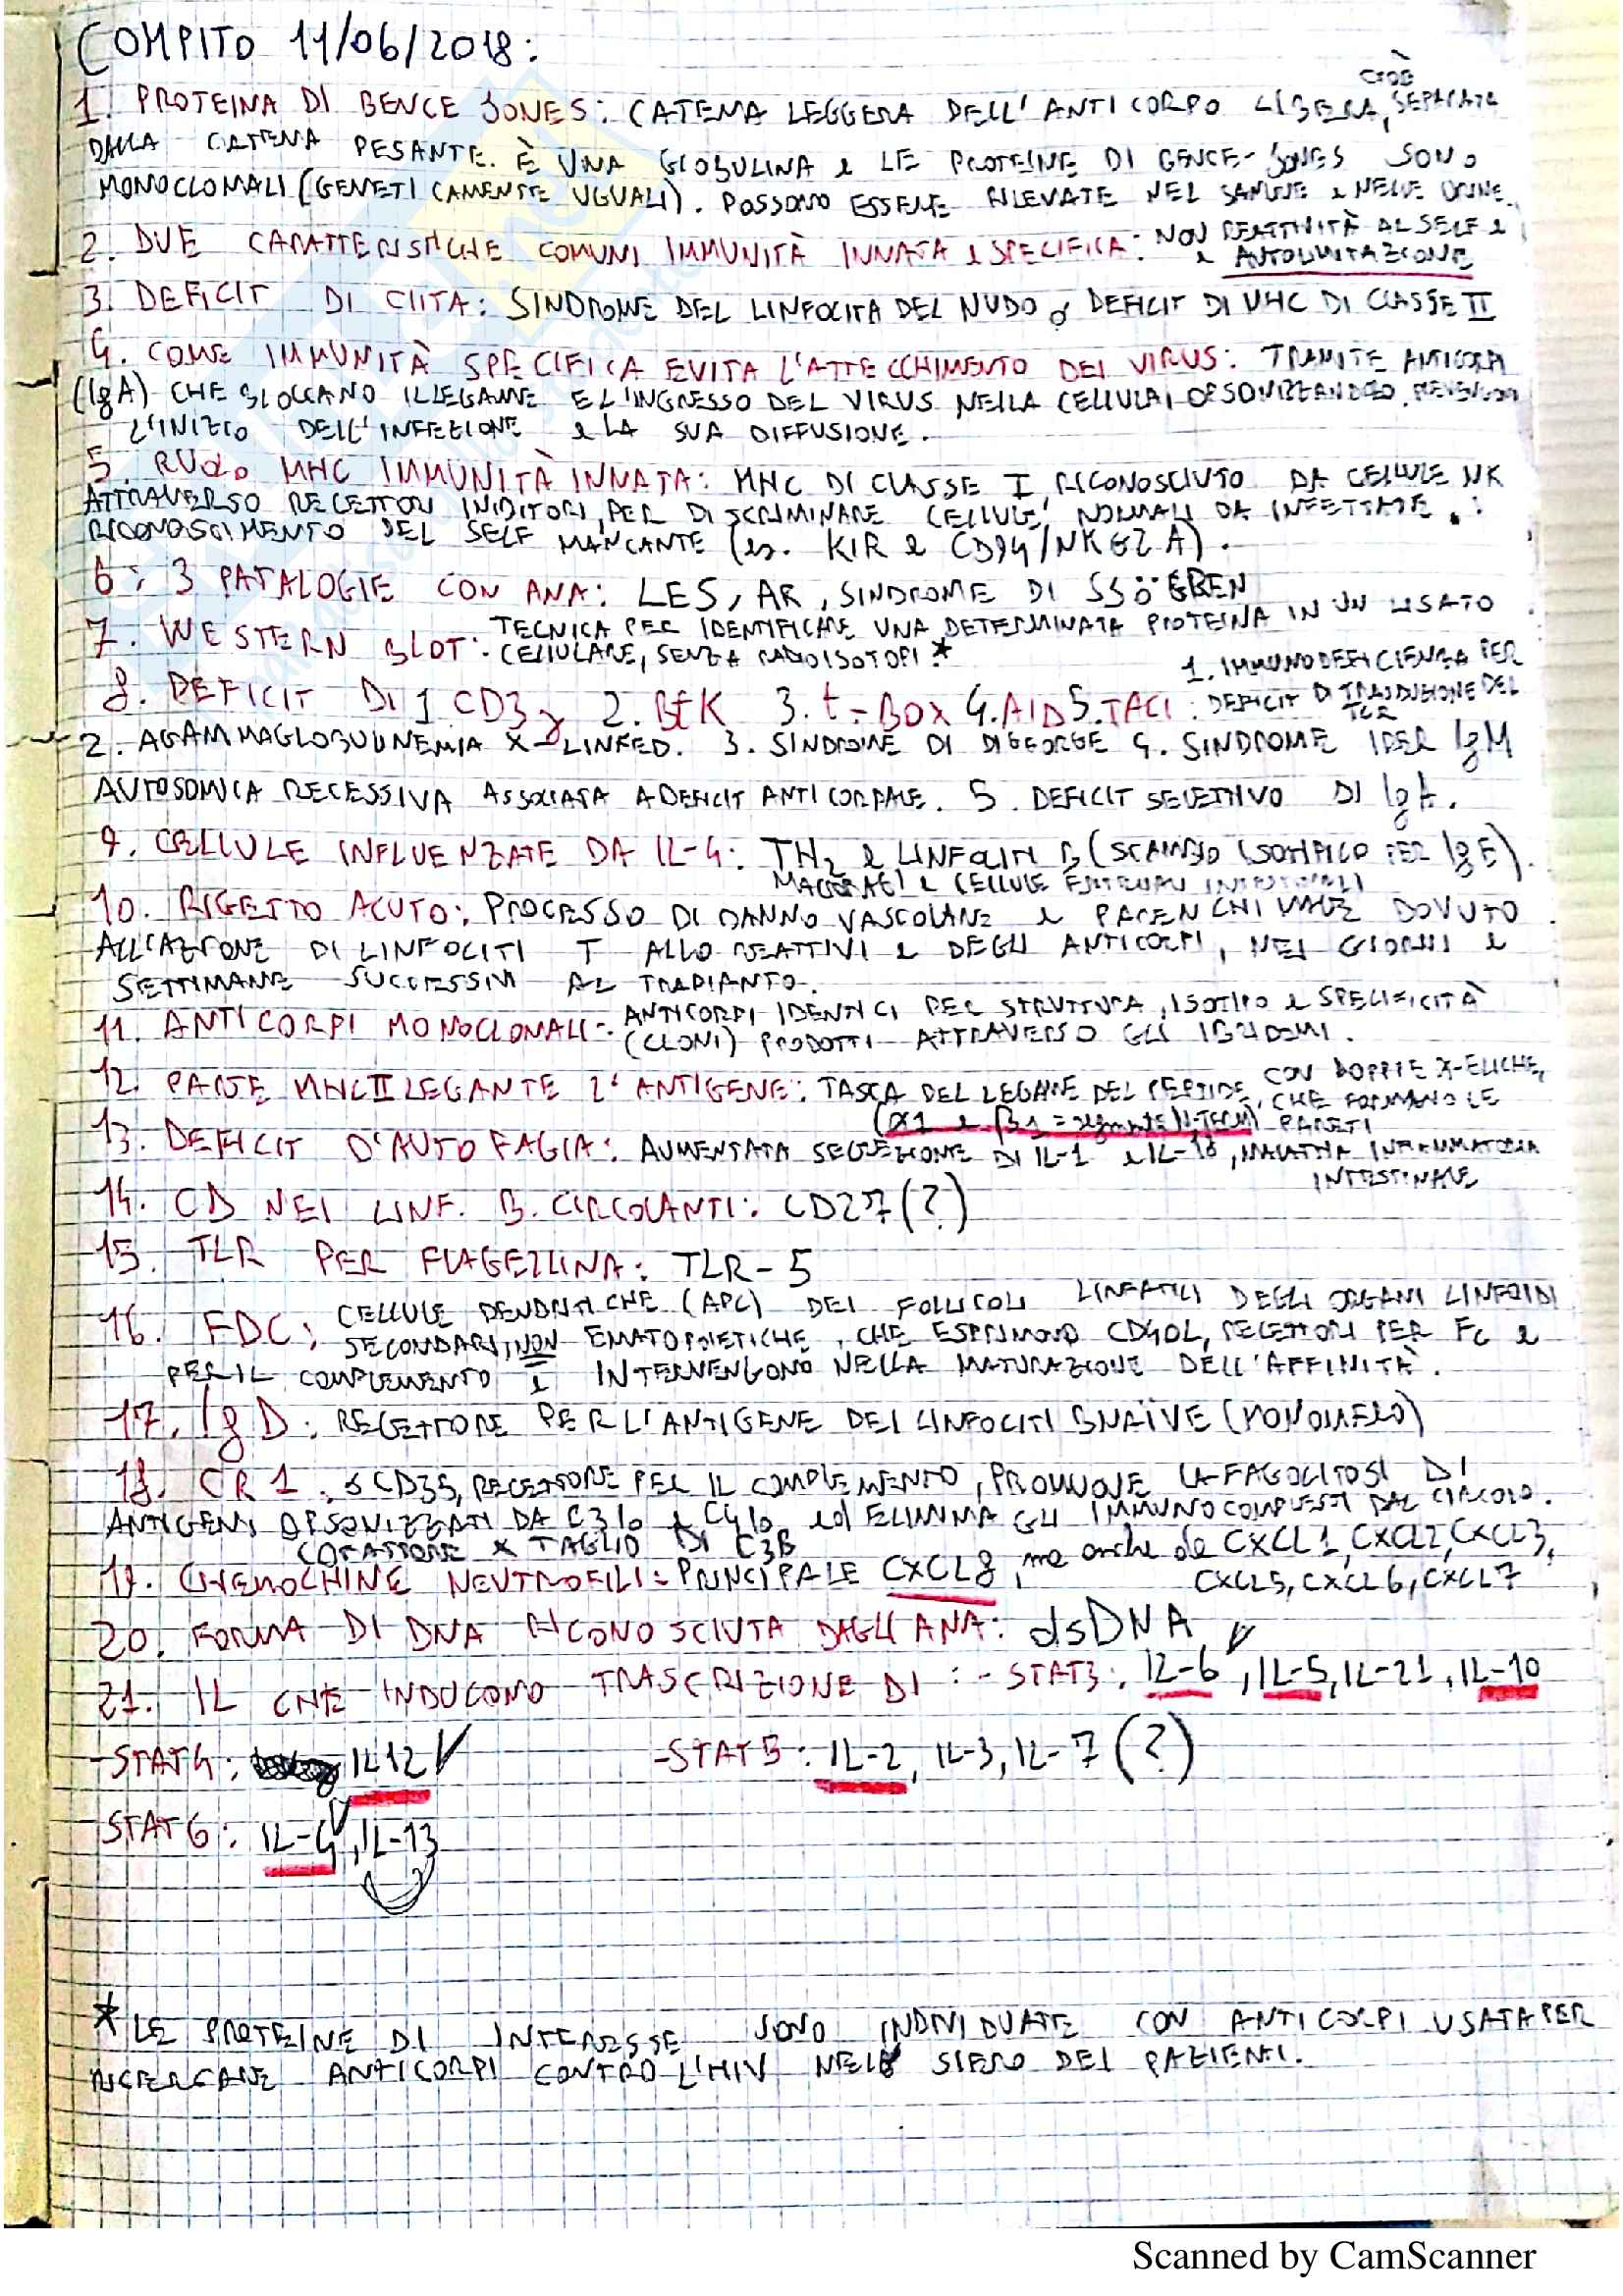 COMPITO 11/06/2018:
1. PROTEINA DI BENCE JONES: CATENA LEGGERA DELL'ANTICORPO LIBERA, CIOÈ SEPARATA
DALLA CATENA PESANTE. È UNA GLOBULINA e LE PROTEINE DI BENCE-JONES SONO
MONOCLONALI (GENETICAMENTE UGUALI). POSSONO ESSERE RILEVATE NEL SANGUE e NELLE URINE.
2. DUE CARATTERISTICHE COMUNI IMMUNITÀ INNATA e SPECIFICA: NON REATTIVITÀ AL SELF e
e AUTOLIMITAZIONE
3. DEFICIT DI CIITA: SINDROME DEL LINFOCITA DEL NUDO o DEFICIT DI MHC DI CLASSE II
4. COME IMMUNITÀ SPECIFICA EVITA L'ATTECCHIMENTO DEI VIRUS: TRAMITE ANTICORPI
(IgA) CHE BLOCCANO IL LEGAME E L'INGRESSO DEL VIRUS NELLA CELLULA, OPSONIZZANDOLO, PREVENGONO
L'INIZIO DELL'INFEZIONE e LA SUA DIFFUSIONE.
5. RUOLO MHC IMMUNITÀ INNATA: MHC DI CLASSE I, RICONOSCIUTO DA CELLULE NK
ATTRAVERSO RECETTORI INIBITORI, PER DISCRIMINARE CELLULE NORMALI DA INFETTATE.:
RICONOSCIMENTO DEL SELF MANCANTE (es. KIR e CD94/NKG2A).
6. 3 PATALOGIE CON ANA: LES, AR, SINDROME DI SJÖGREN
7. WESTERN BLOT: TECNICA PER IDENTIFICARE UNA DETERMINATA PROTEINA IN UN LISATO
CELLULARE, SENZA RADIOISOTOPI *
8. DEFICIT DI 1 CD3γ 2. BtK 3. t-BOX 4. AID 5. TACI: 1. IMMUNODEFICIENZA PER
DEFICIT DI TRASDUZIONE DEL
TCR
2. AGAMMAGLOBULINEMIA X-LINKED. 3. SINDROME DI DIGEORGE 4. SINDROME IPER IgM
AUTOSOMICA RECESSIVA ASSOCIATA A DEFICIT ANTICORPALE. 5. DEFICIT SELETTIVO DI IgA.
9. CELLULE INFLUENZATE DA IL-4: TH2 e LINFOCITI B (SCAMBIO ISOTIPICO PER IgE).
MACROFAGI e CELLULE EPITELIALI INTESTINALI
10. RIGETTO ACUTO: PROCESSO DI DANNO VASCOLARE e PARENCHIMALE DOVUTO
ALL'AZIONE DI LINFOCITI T ALLOREATTIVI e DEGLI ANTICORPI, NEI GIORNI e
SETTIMANE SUCCESSIVI AL TRAPIANTO.
11. ANTICORPI MONOCLONALI: ANTICORPI IDENTICI PER STRUTTURA, ISOTIPO e SPECIFICITÀ
(CLONI) PRODOTTI ATTRAVERSO GLI IBRIDOMI.
12. PARTE MHC II LEGANTE L'ANTIGENE: TASCA DEL LEGAME DEL PEPTIDE, CON DOPPIE α-ELICHE,
CHE FORMANO LE
PARETI
(α1 e β1 = segmento N-TERM)
13. DEFICIT D'AUTOFAGIA: AUMENTATA SECREZIONE DI IL-1 e IL-18, MALATTIA INFIAMMATORIA
INTESTINALE
14. CD NEI LINF. B. CIRCOLANTI: CD27 (?)
15. TLR PER FLAGELLINA: TLR-5
16. FDC: CELLULE DENDRITICHE (APC) DEI FOLLICOLI LINFATICI DEGLI ORGANI LINFOIDI
SECONDARI, NON EMATOPOIETICHE, CHE ESPRIMONO CD40L, RECETTORI PER Fc e
PER IL COMPLEMENTO e INTERVENGONO NELLA MATURAZIONE DELL'AFFINITÀ.
17. IgD: RECETTORE PER L'ANTIGENE DEI LINFOCITI B NAÏVE (MONOMERO)
18. CR1: o CD35, RECETTORE PER IL COMPLEMENTO, PROMUOVE LA FAGOCITOSI DI
ANTIGENI OPSONIZZATI DA C3b e C4b ed ELIMINA GLI IMMUNOCOMPLESSI DAL CIRCOLO.
COFATTORE x TAGLIO DI C3B
19. CHEMOCHINE NEUTROFILI: PRINCIPALE CXCL8, ma anche da CXCL1, CXCL2, CXCL3,
CXCL5, CXCL6, CXCL7
20. FORMA DI DNA RICONOSCIUTA DAGLI ANA: dsDNA
21. IL CHE INDUCONO TRASCRIZIONE DI: - STAT3: IL-6, IL-5, IL-21, IL-10
-STAT4: IL12 -STAT5: IL-2, IL-3, IL-7 (?)
STAT6: IL-4, IL-13
* LE PROTEINE DI INTERESSE SONO INDIVIDUATE CON ANTICORPI USATA PER
RICERCARE ANTICORPI CONTRO L'HIV NEL SIERO DEI PAZIENTI.
Scanned by CamScanner